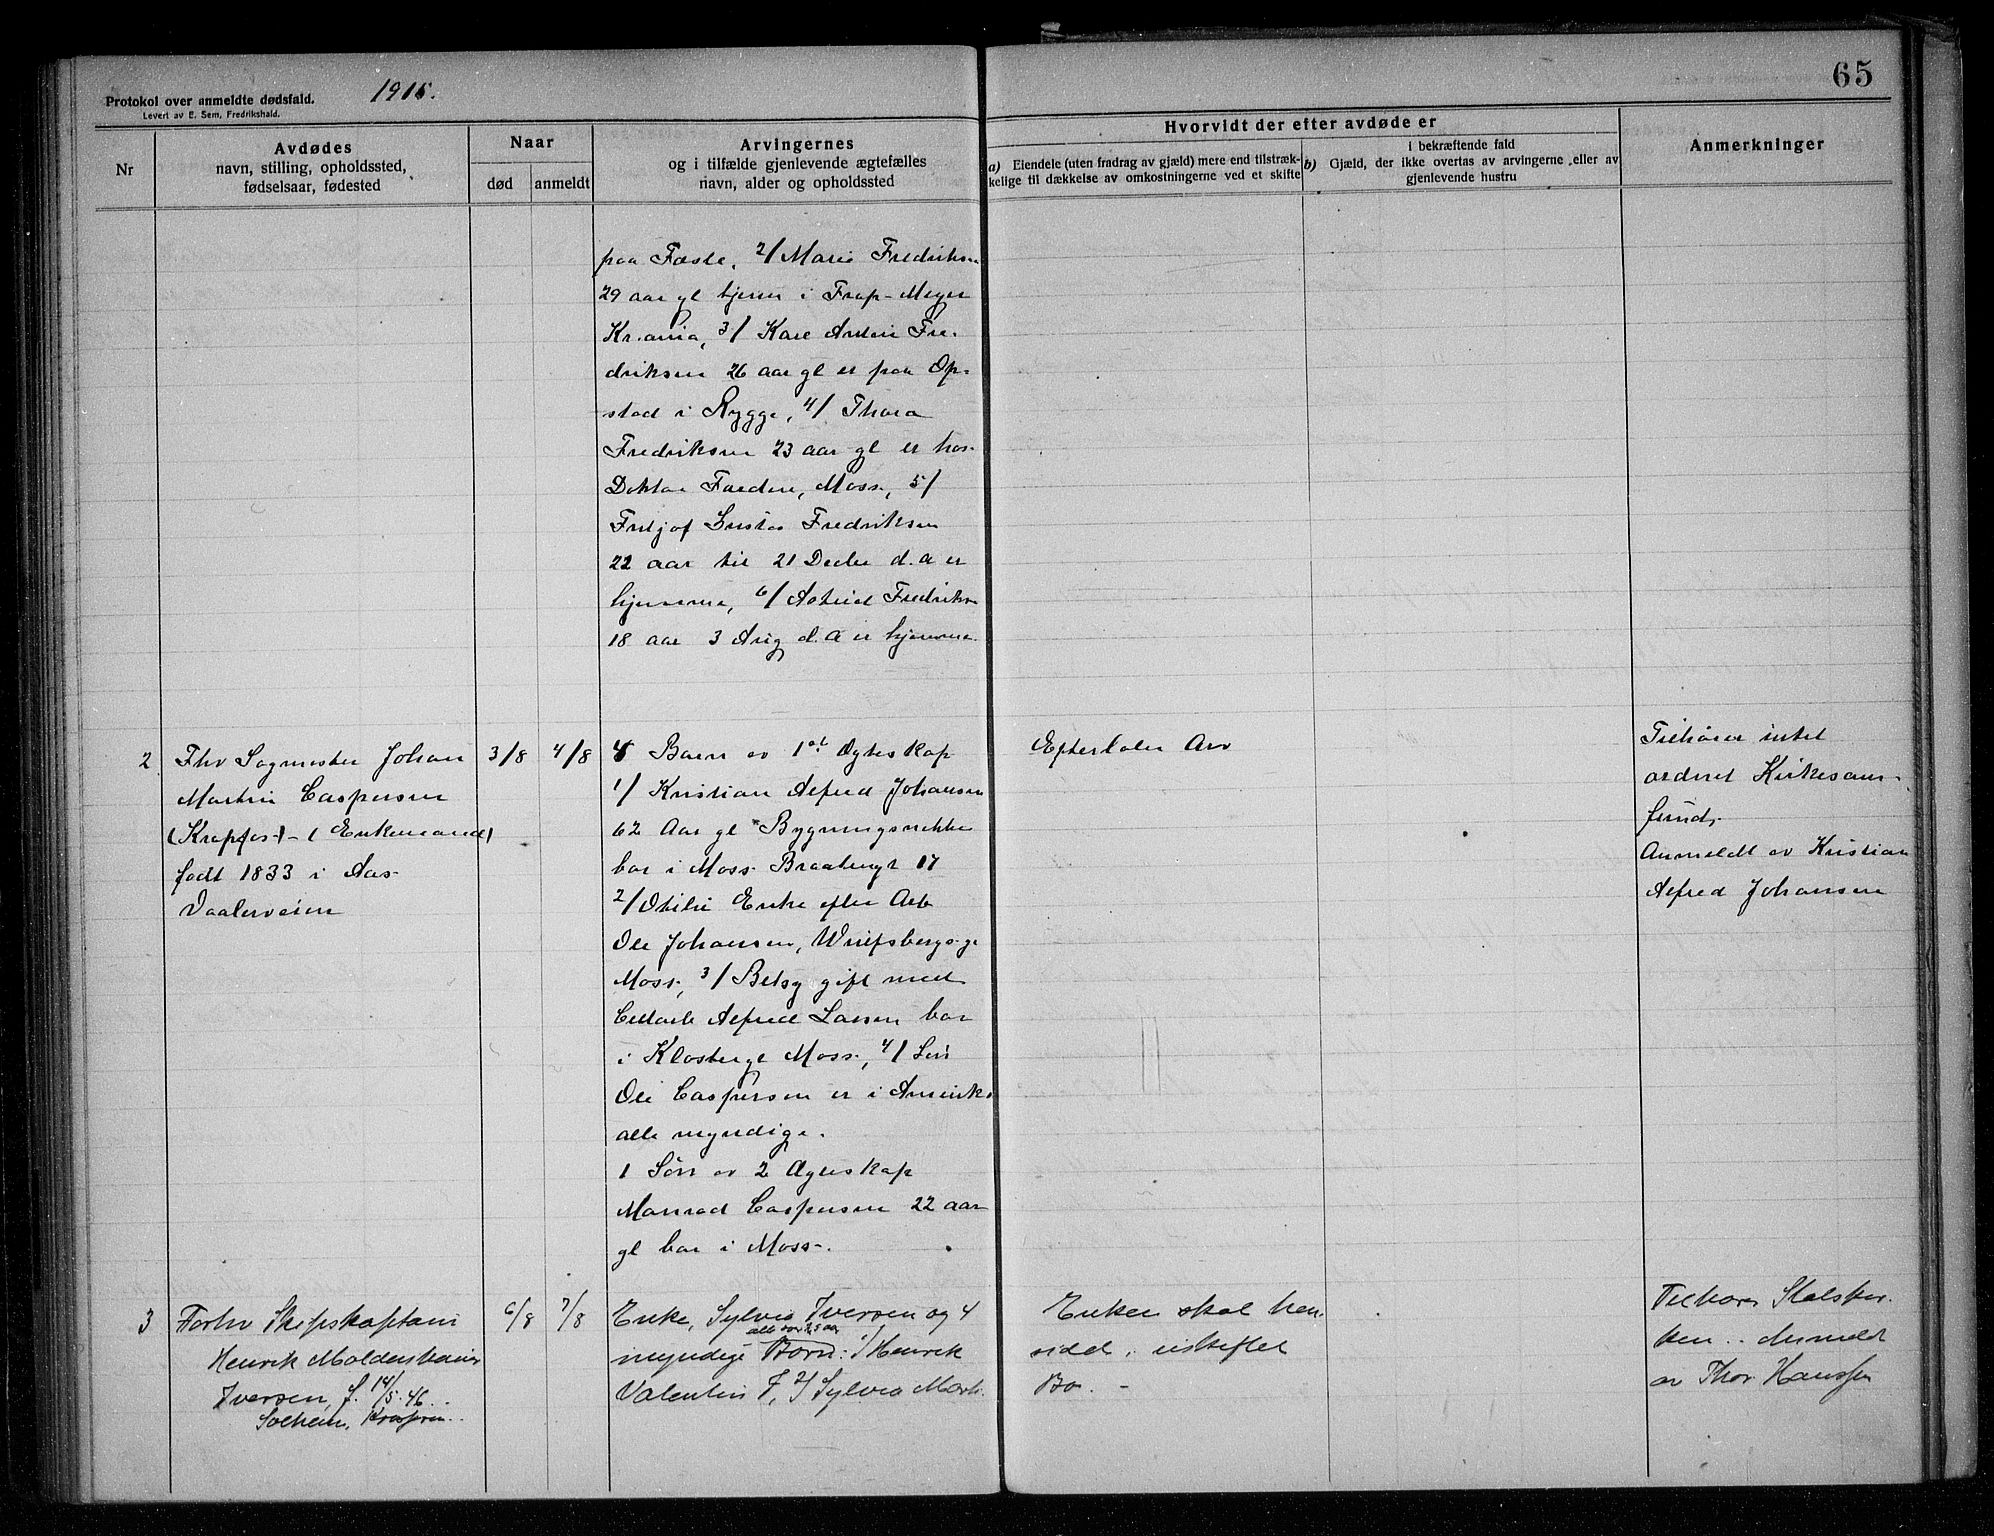 Protokol over anmeldte dødsfald.
Levert av E. Sem, Fredrikshald.
1915.
65
Nr
Avdødes
navn, stilling, opholdssted,
fødselsaar, fødested
Naar
død
anmeldt
Arvingernes
og i tilfælde gjenlevende ægtefælles
navn, alder og opholdssted
Hvorvidt der efter avdøde er
a) Eiendele (uten fradrag av gjæld) mere end tilstræk-
kelige til dækkelse av omkostningerne ved et skifte
i bekræftende fald
b) Gjæld, der ikke overtas av arvingerne eller av
gjenlevende hustru
Anmerkninger
paa Feste, 2/ Marie Fredriksen
29 aar gl tjener i Meyer
Kr.ania, 3/ Karl Anton Fre-
driksen 26 aar gl er paa Op-
stad i Rygge, 4/ Thora
Fredriksen 23 aar gl er hos
Doktor Moss, 5/
Fritjof Gustav Fredriksen
22 aar til 21 Decbr d.a er
hjemme, 6/ Astrid Fredriksen
18 aar 3 Aug d.a er hjemme
2
Fhv Sagmester Johan
Martin Caspersen
(Krapfos) - (Enkemand)
født 1833 i Aas
Vaalerveien
3/8
4/8
4 Barn av 1ste Ægteskap
1/ Kristian Alfred Johansen
62 Aar gl
bor i Moss Braatengt 17
2/ Otilie Enke efter Arb
Ole Johansen, Wulfsbergsg.
Moss, 3/ Betsy gift med
Alfred Larsen bor
i Klostergt Moss, 4/ Søn
Ole Caspersen er i Amerika
alle myndige.
1 Søn av 2 Ægteskap
Manrad Caspersen 22 aar
gl bor i Moss.
Efterlater Arv
Tilhører intet
ordnet Kirkesam-
fund.
Anmeldt av Kristian
Alfred Johansen
3
Forhv Skipskaptain
Henrik
Iversen, f. 14/5.46..
Solheim, Krapfos..
6/8
7/8
Enke, Sylvia Iversen og 4
alle over 25 aar
myndige Børn: 1/ Henrik
Valentin I, 2/ Sylvia Marh.
Enken skal hen-
sidde i uskiftet
Bo. -
Tilhører Statskir-
ken.. Anmeldt
av Thor Hanssen